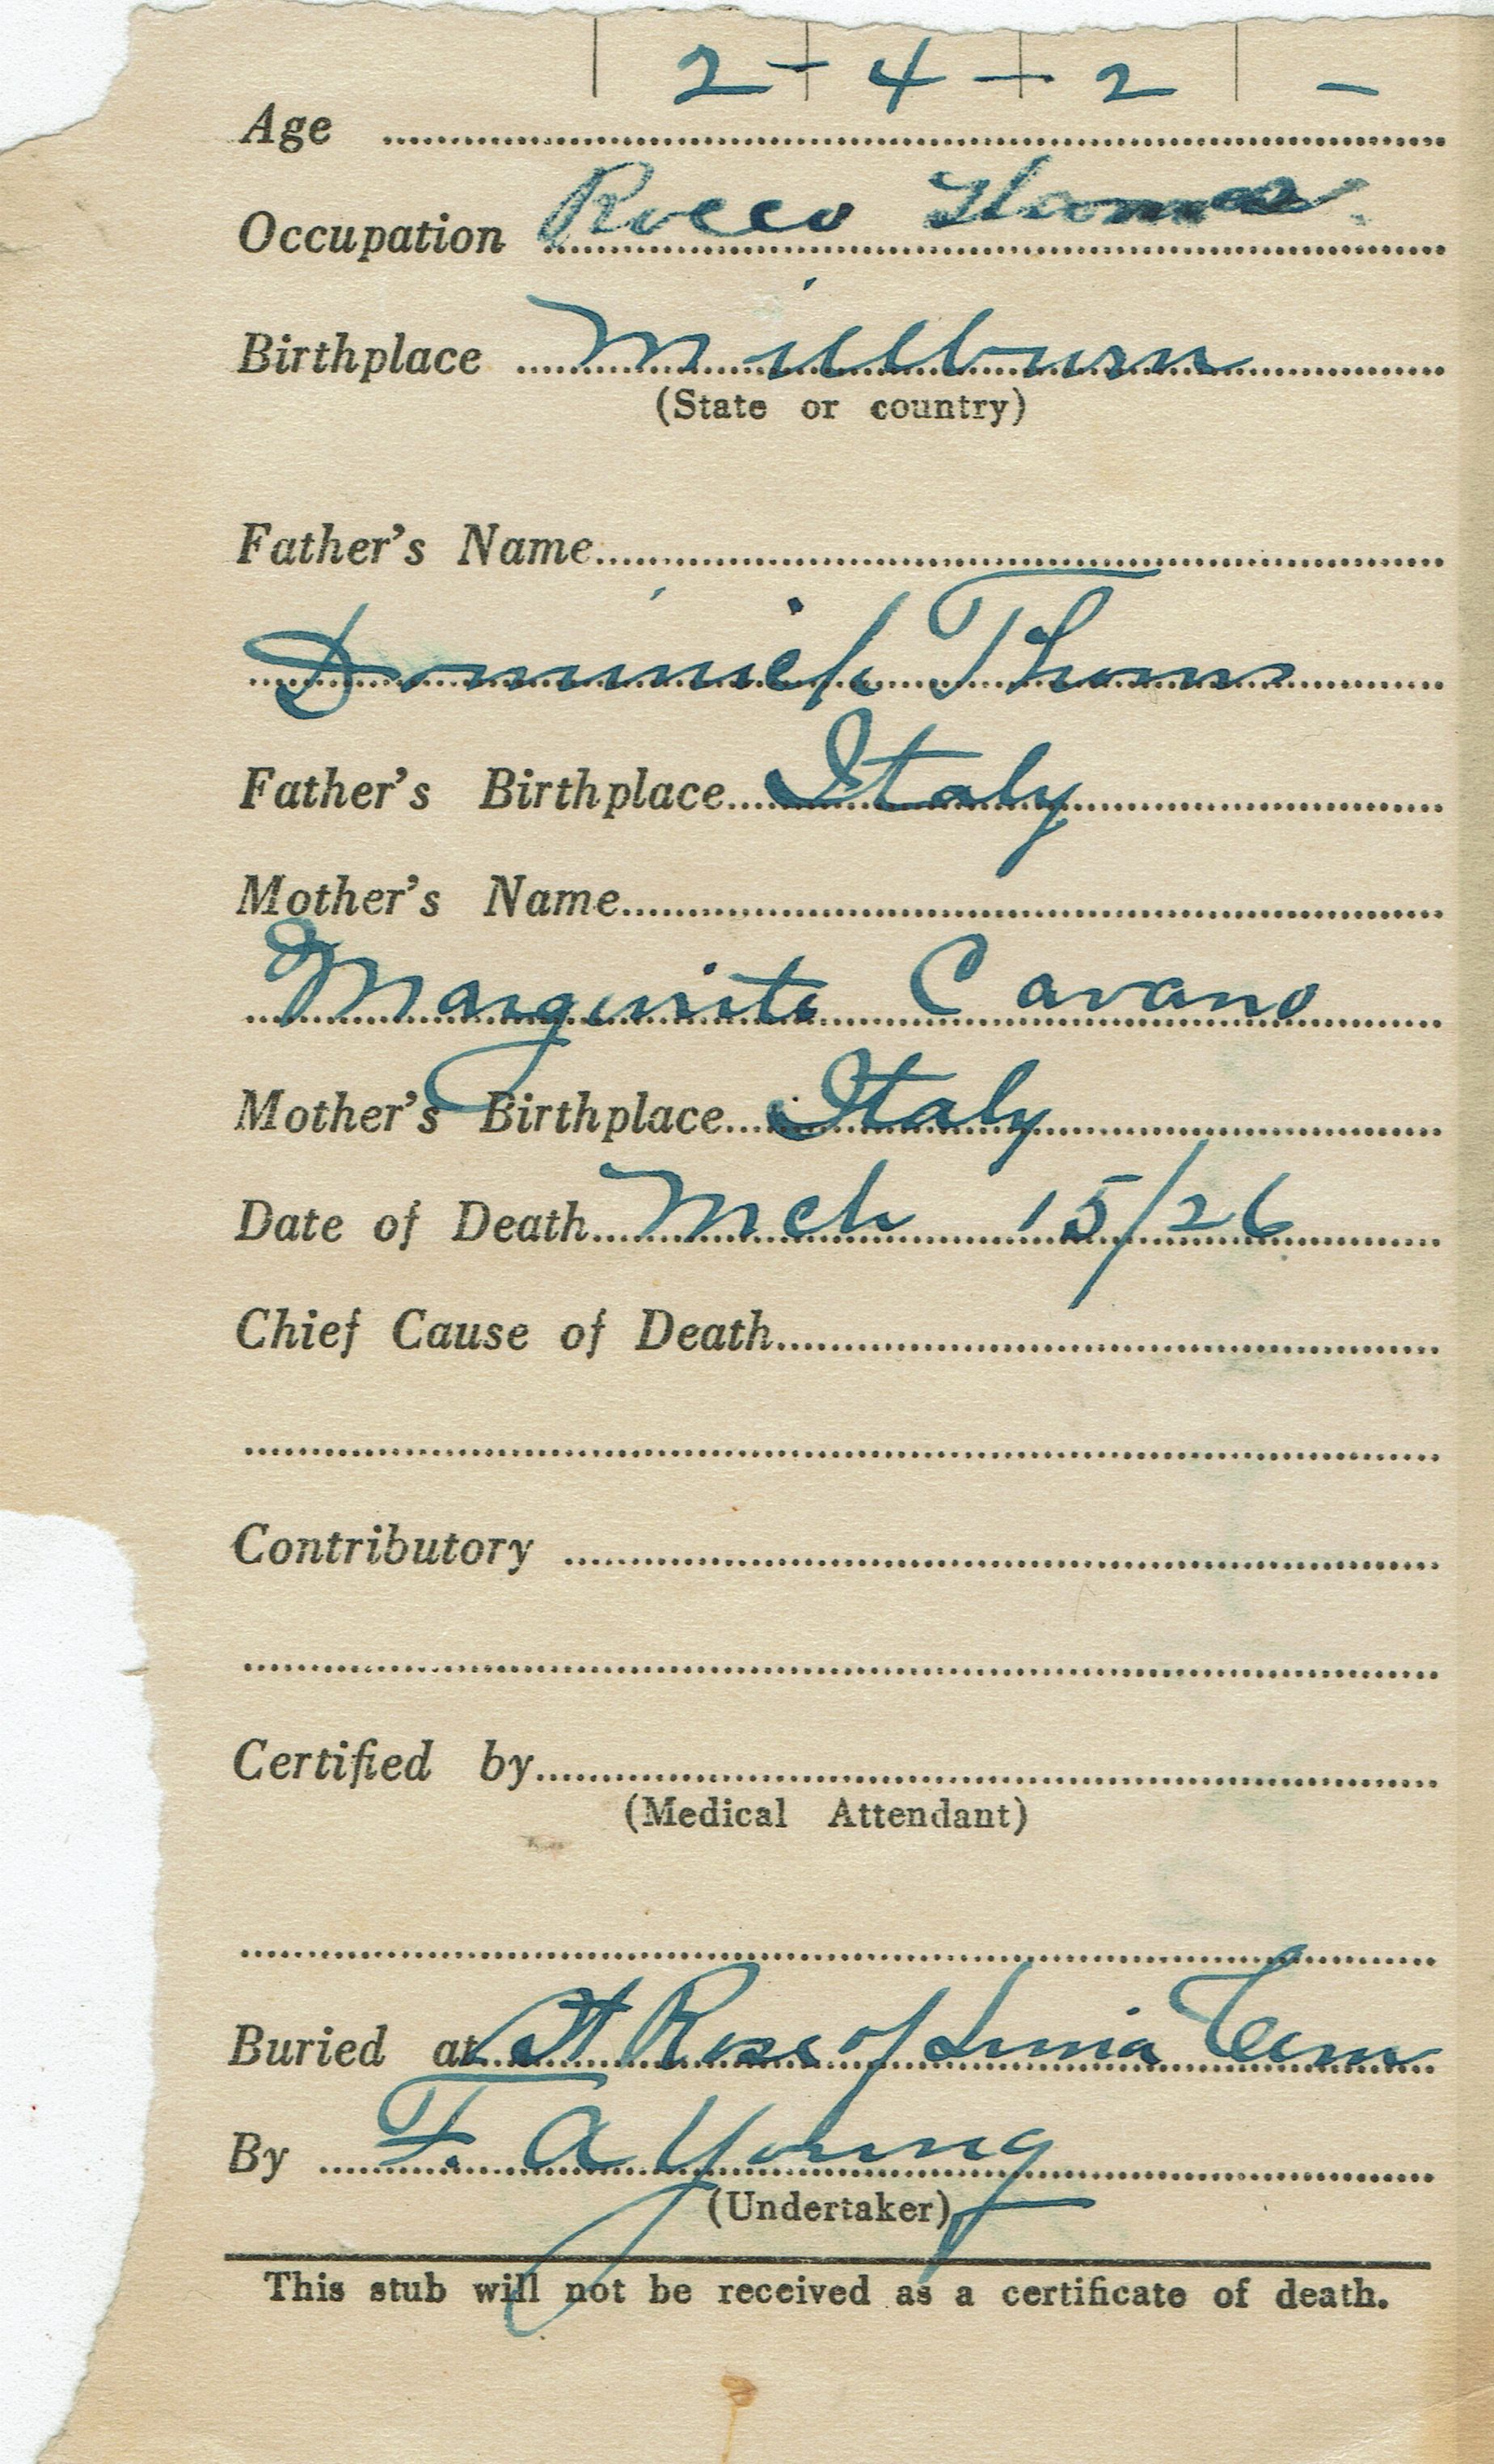 2 - 4 - 2 -
Age
Occupation Rocco Thomas
Birthplace Millburn
(State or country)
Father's Name
Dominick Thomas
Father's Birthplace Italy
Mother's Name
Marguerite Cavano
Mother's Birthplace Italy
Date of Death Mch 15/26
Chief Cause of Death
Contributory
Certified by
(Medical Attendant)
Buried at St Rose of Limia Cem
By F. A Young
(Undertaker)
This stub will not be received as a certificate of death.